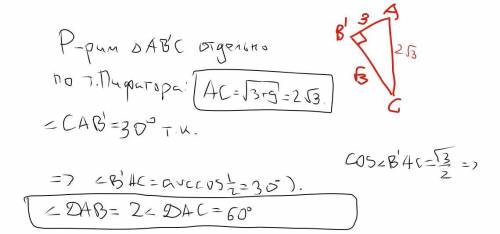 Р-рим △AB'C отдельно
по т. Пифагора: AC=√3+9=2√3.
∠CAB'=30° т.к.
cos∠B'AC=√3/2 =>
=> ∠B'AC=arccos 1/2=30°).
∠DAB=2∠DAC=60°
A
B'
3
2√3
√3
C